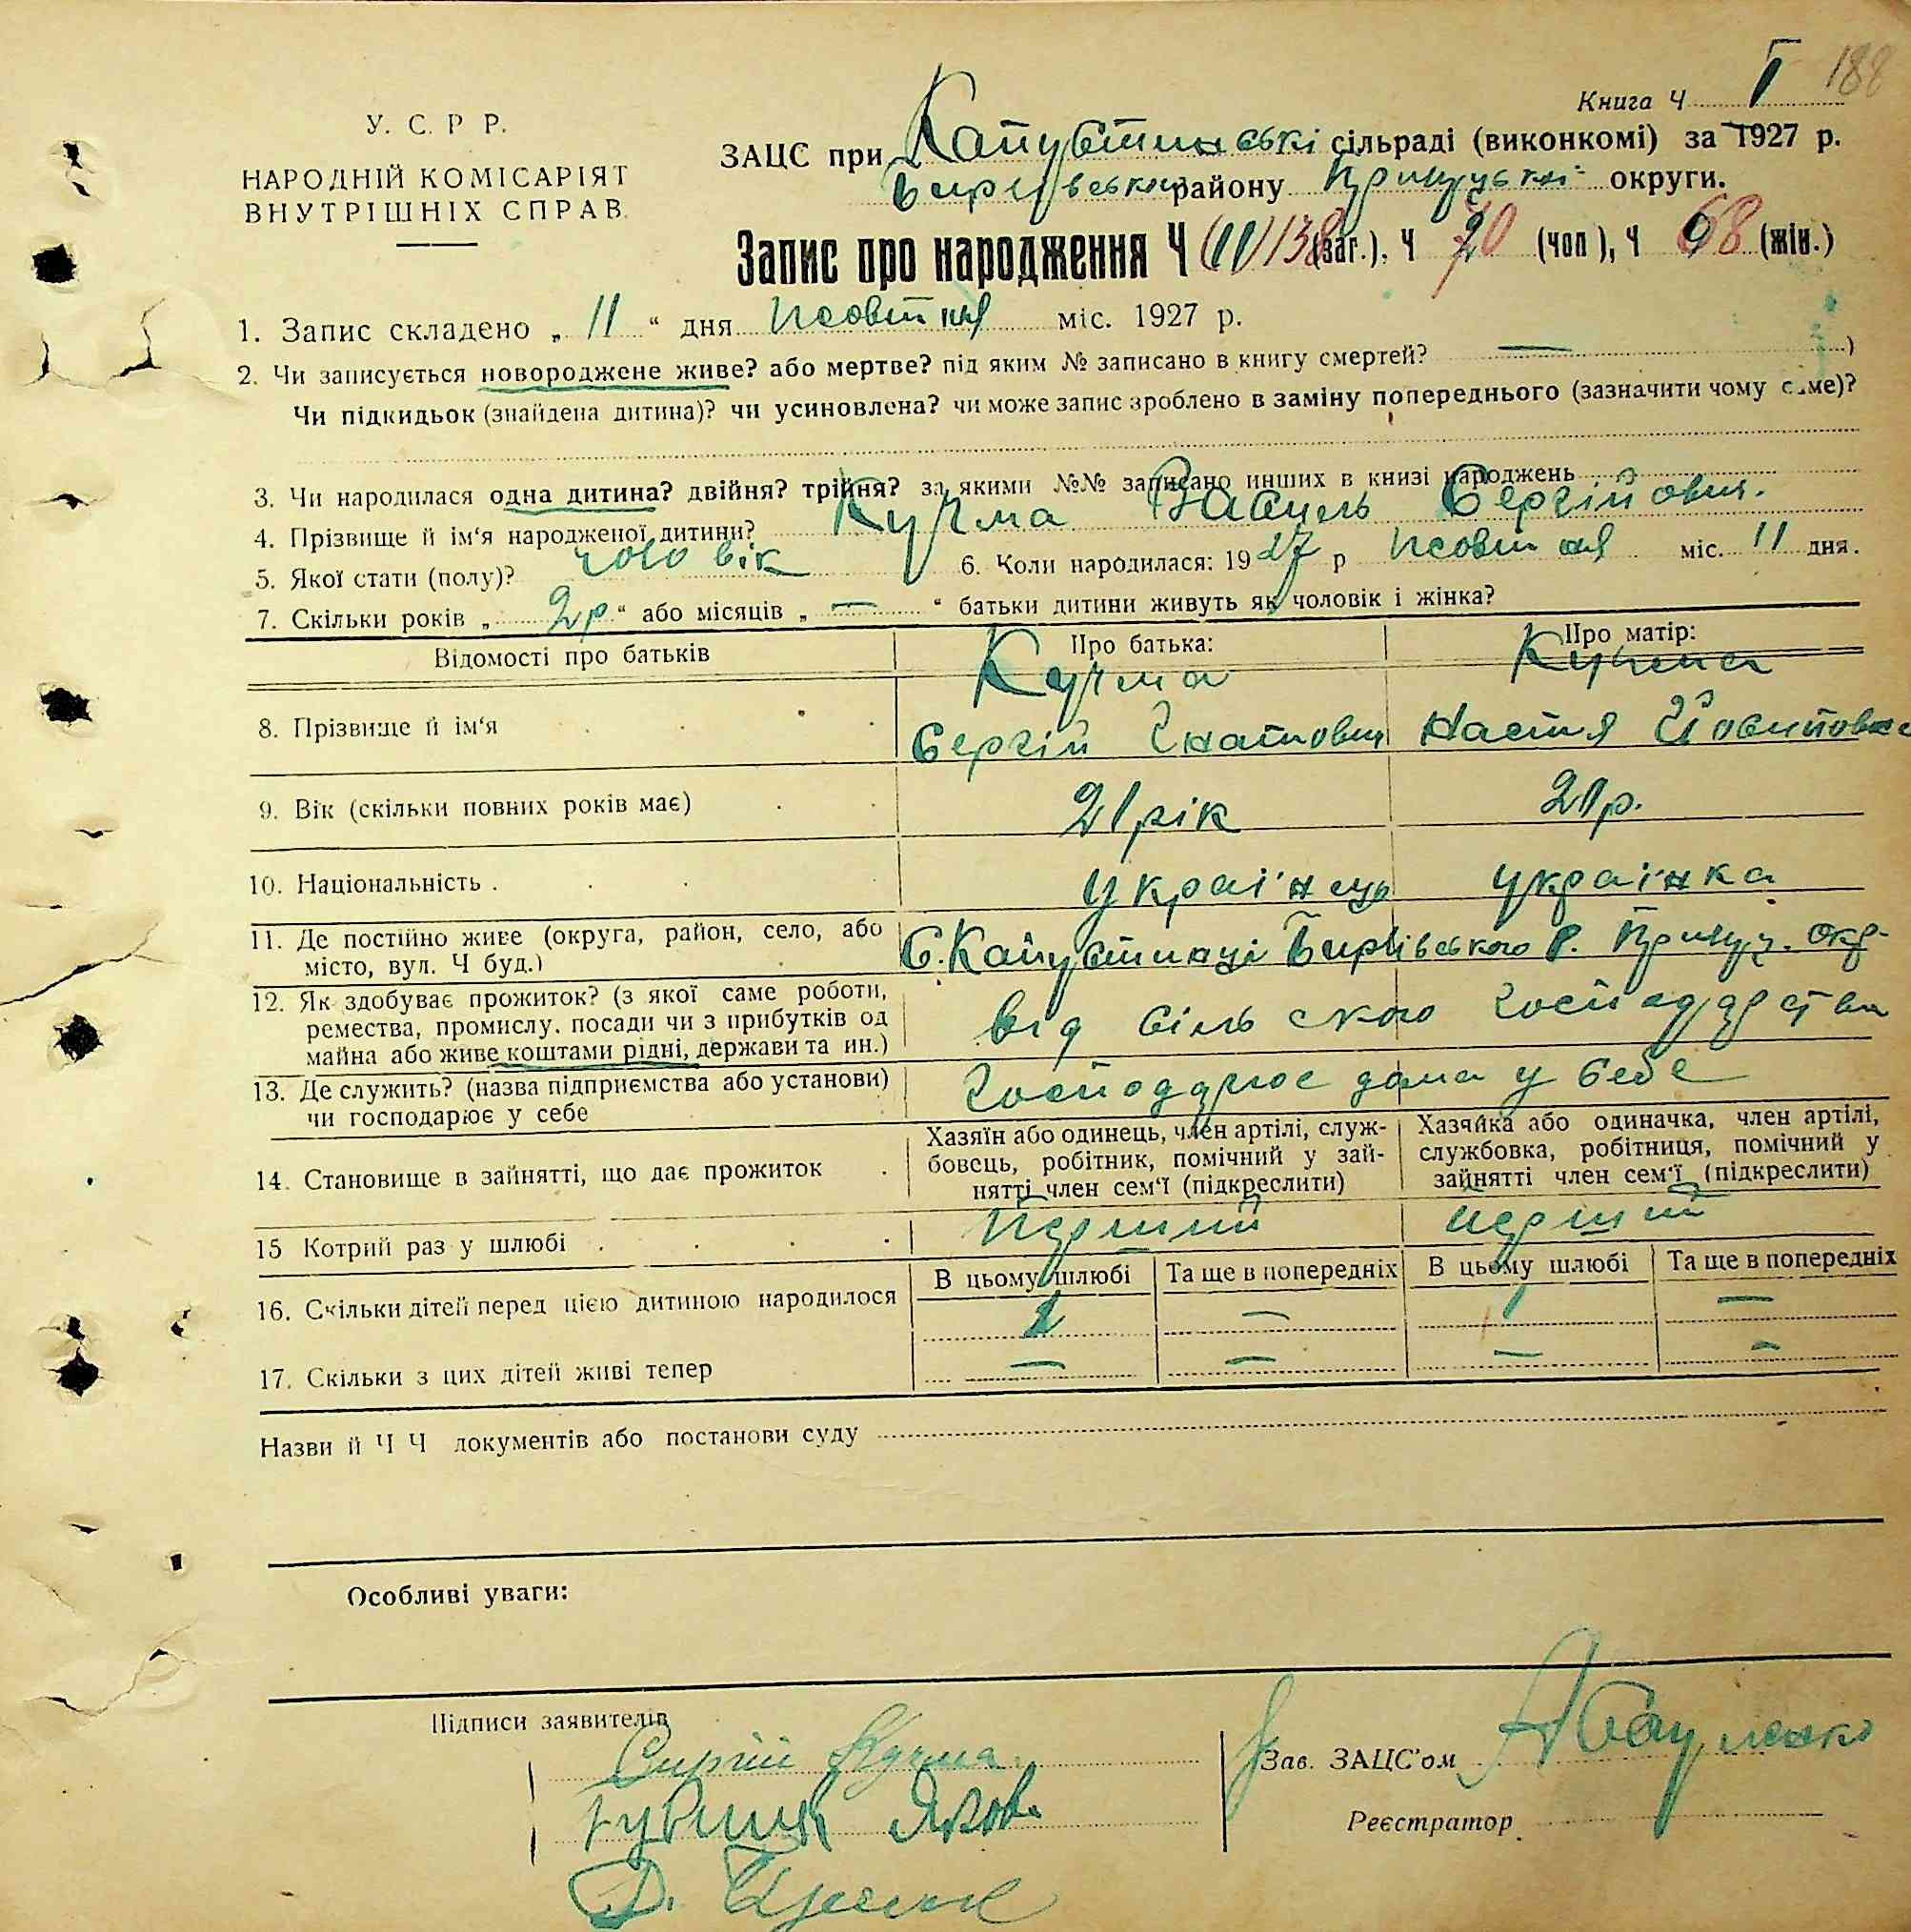 188
Книга Ч I
У. С. Р Р.
НАРОДНІЙ КОМІСАРІЯТ
ВНУТРІШНІХ СПРАВ
ЗАЦС при Капустинські сільраді (виконкомі) за 1927 р.
району Прилуцької округи.
Запис про народження Ч (11) 138 (заг.), Ч 70 (чол), Ч 68 (жін.)
1. Запис складено „ 11 “ дня Жовтня міс. 1927 р.
2. Чи записується новороджене живе? або мертве? під яким № записано в книгу смертей? — )
Чи підкидьок (знайдена дитина)? чи усиновлена? чи може запис зроблено в заміну попереднього (зазначити чому саме)?
3. Чи народилася одна дитина? двійня? трійня? за якими №№ записано инших в книзі народжень
4. Прізвище й ім'я народженої дитини? Кучма Василь Сергійович.
5. Якої стати (полу)? чоловік 6. Коли народилася: 1927 р Жовтня міс. 11 дня.
7. Скільки років „ 2р “ або місяців „ — “ батьки дитини живуть як чоловік і жінка?
Відомості про батьків
Про батька:
Про матір:
8. Прізвище й ім‘я
Кучма
Сергій Гнатович
Кучма
Настя Йосиповна
9. Вік (скільки повних років має)
21 рік
21 р.
10. Національність .
українець
українка
11. Де постійно живе (округа, район, село, або
місто, вул. Ч буд.)
С. Капустинці Р. Прилуц. окр.
12. Як здобуває прожиток? (з якої саме роботи,
ремества, промислу, посади чи з прибутків од
майна або живе коштами рідні, держави та ин.)
від сільського господарства
13. Де служить? (назва підприємства або установи)
чи господарює у себе
господарює дома у себе
14. Становище в зайнятті, що дає прожиток
Хазяїн або одинець, член артілі, служ-
бовець, робітник, помічний у зай-
нятті член сем‘ї (підкреслити)
Хазяйка або одиначка, член артілі,
службовка, робітниця, помічний у
зайнятті член сем‘ї (підкреслити)
15 Котрий раз у шлюбі
перший
перший
В цьому шлюбі
Та ще в попередніх
В цьому шлюбі
Та ще в попередніх
16. Скільки дітей перед цією дитиною народилося
1 — 1 —
17. Скільки з цих дітей живі тепер
— — — —
Назви й Ч Ч документів або постанови суду
Особливі уваги:
Підписи заявителів
Сиргій Кучма
Зав. ЗАЦС'ом
Яков
Реєстратор
Д.